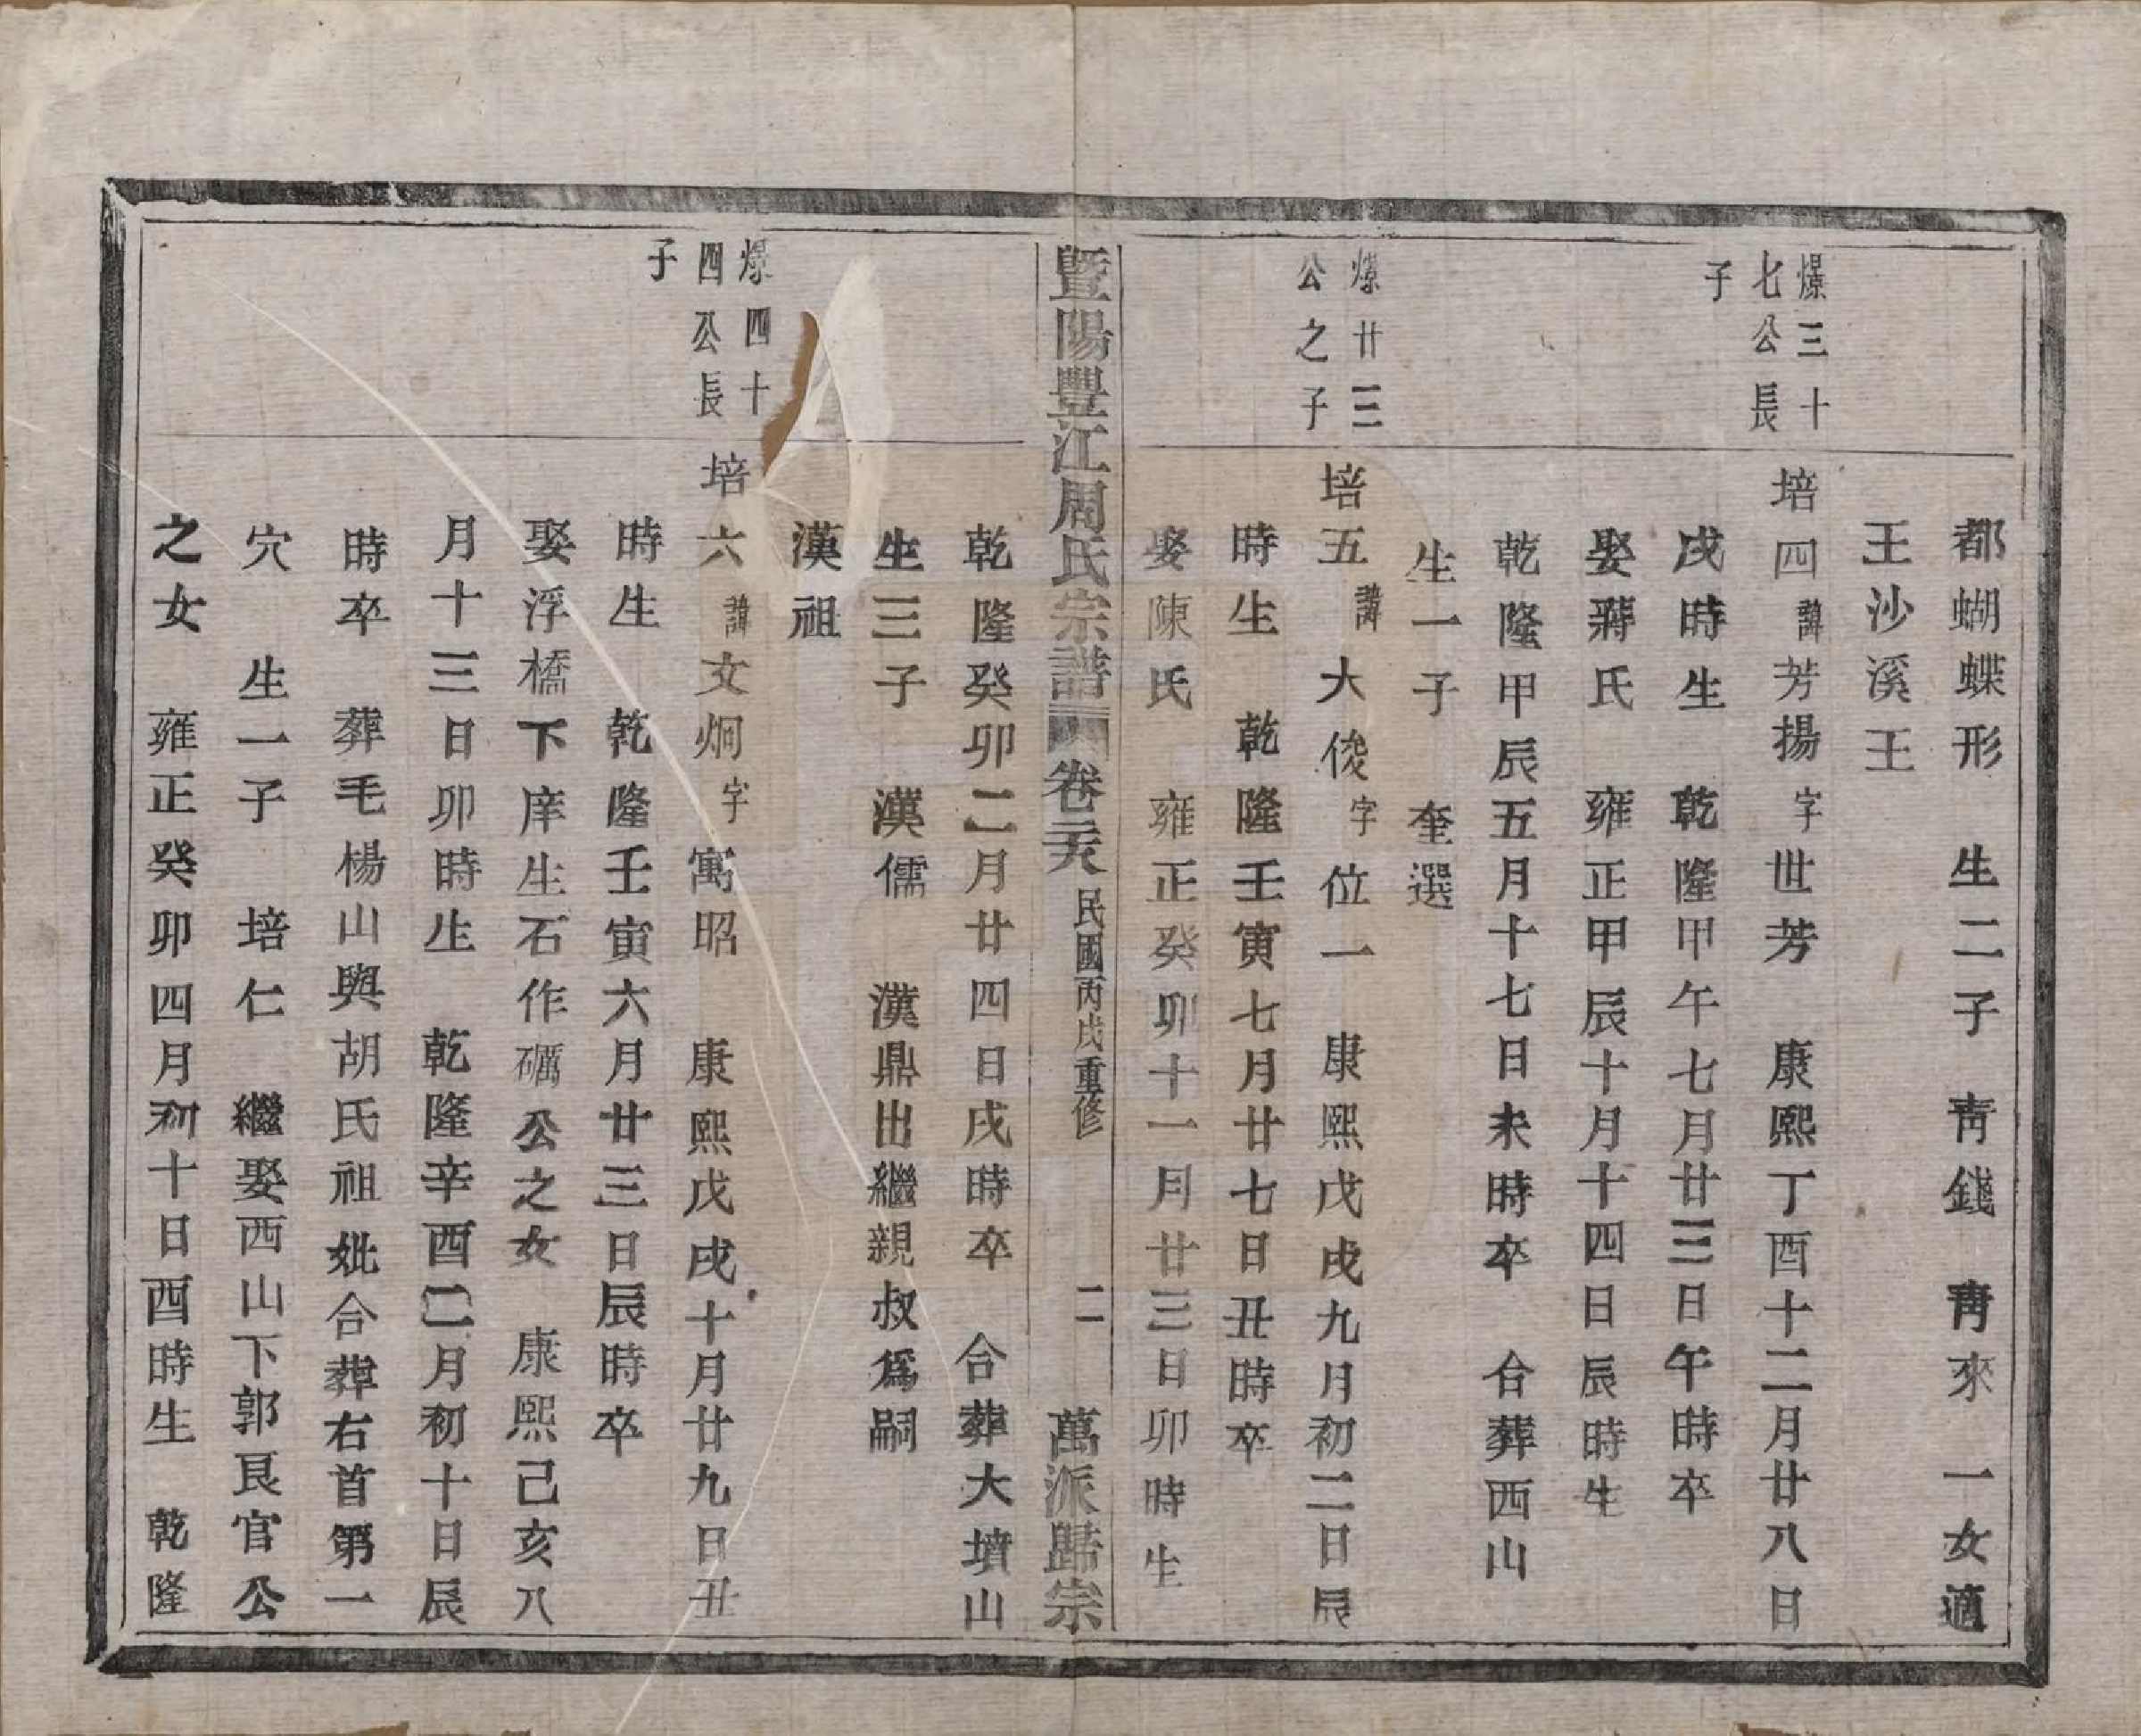 都蝴蝶形　生二子　靑錢　靑來　一女適
王沙溪王
爆三十
七公長
子
培四諱芳揚字世芳　康熙丁酉十二月廿八日
戌時生　乾隆甲午七月廿三日午時卒
娶蔣氏　雍正甲辰十月十四日辰時生
乾隆甲辰五月十七日未時卒　合葬西山
生一子　奎選
爆廿三
公之子
培五諱大俊字位一　康熙戊戌九月初二日辰
時生　乾隆壬寅七月廿七日丑時卒
娶陳氏　雍正癸卯十一月廿三日卯時生
暨陽豐江周氏宗譜　卷二六　民國丙戌重修　二　萬派歸宗
乾隆癸卯二月廿四日戌時卒　合葬大墳山
生三子　漢儒　漢鼎出繼親叔爲嗣
漢祖
爆四十
四公長
子
培六諱文炯字寓昭　康熙戊戌十月廿九日丑
時生　乾隆壬寅六月廿三日辰時卒
娶浮橋下庠生石作礪公之女　康熙己亥八
月十三日卯時生　乾隆辛酉二月初十日辰
時卒　葬毛楊山與胡氏祖妣合葬右首第一
穴　生一子　培仁　繼娶西山下郭艮官公
之女　雍正癸卯四月初十日酉時生　乾隆